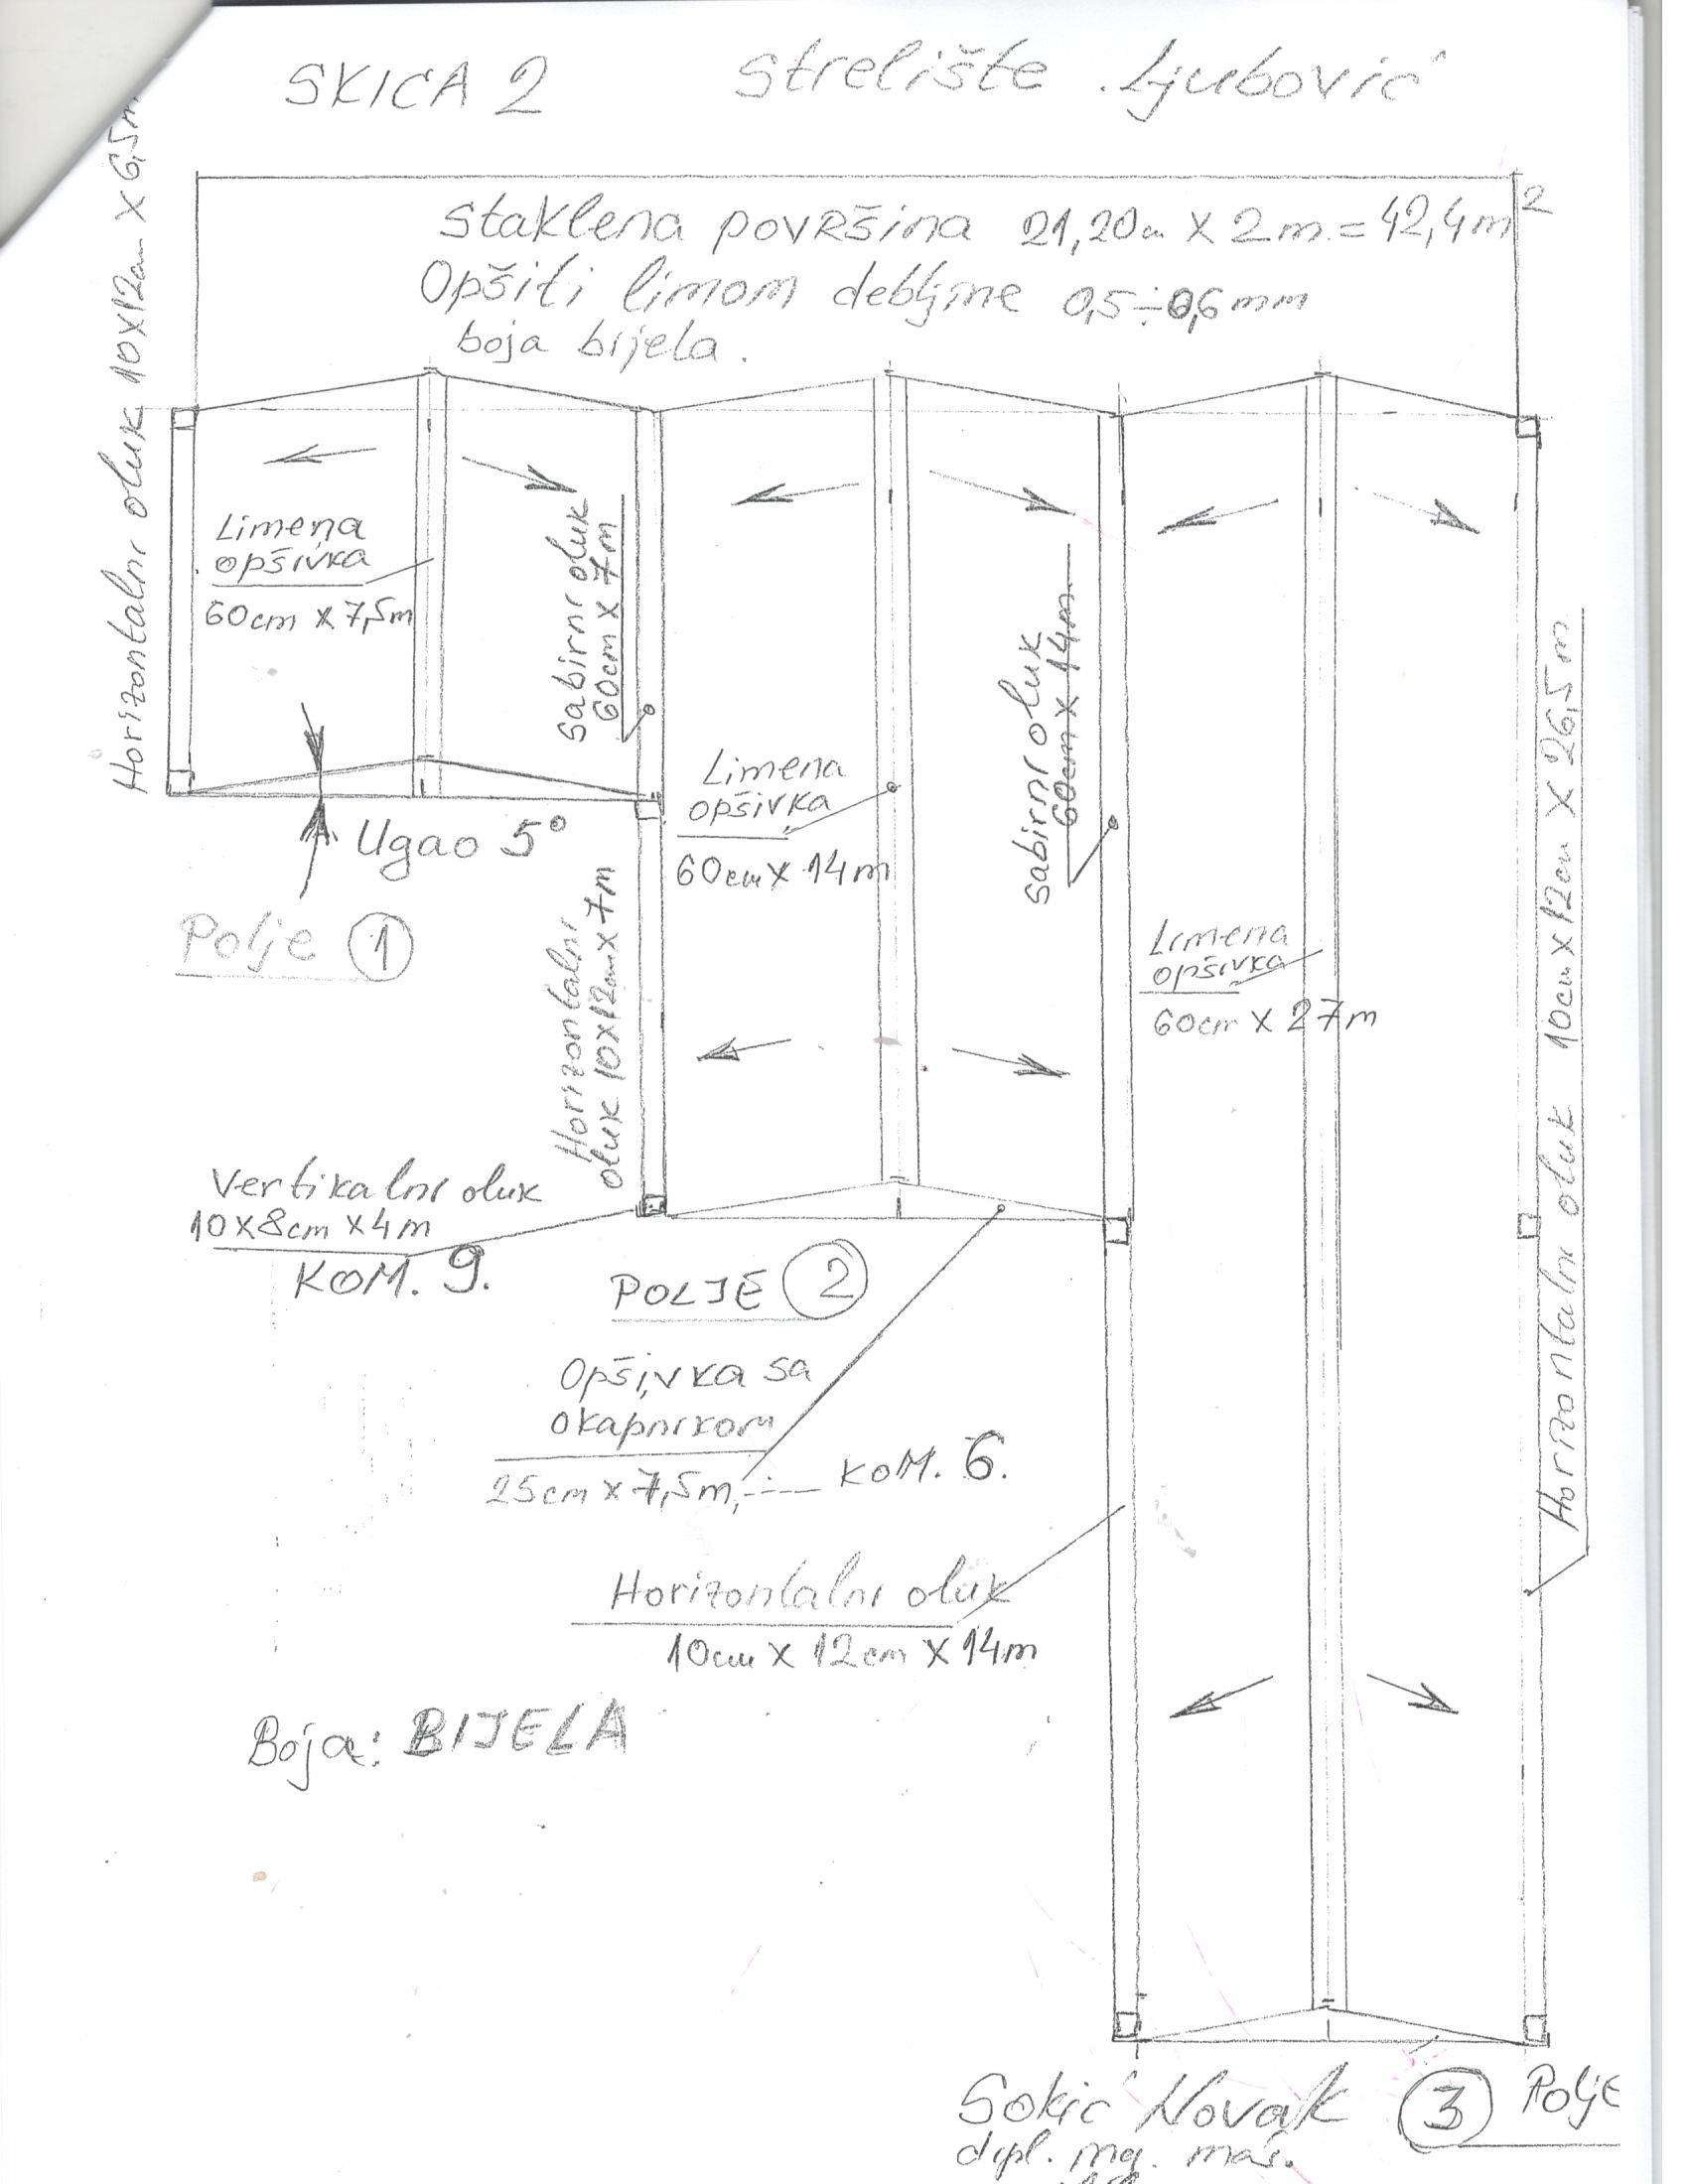 SKICA 2
Strelište Ljubović
Staklena površina 21,20cm X 2m = 42,4m²
Opšiti limom debljine 0,5÷0,6mm
boja bijela.
Horizontalni oluk 10X12cm X 6,5m
Limena
opšivka
60cm X 7,5m
Sabirni oluk
60cm X 7m
Sabirni oluk
60cm X 14m
Limena
opšivka
60cm X 14m
Ugao 5°
Polje 1
Horizontalni
oluk 10X12cm X 7m
Limena
opšivka
60cm X 27m
Horizontalni oluk 10cm X 12cm X 26,5m
Vertikalni oluk
10X8cm X4m
KOM. 9.
POLJE 2
Opšivka sa
okapnikom
25cm X 7,5m, --- KOM. 6.
Horizontalni oluk
10cm X 12cm X 14m
Boja: BIJELA
Sokić Novak
dipl. ing. maš.
3 Polje